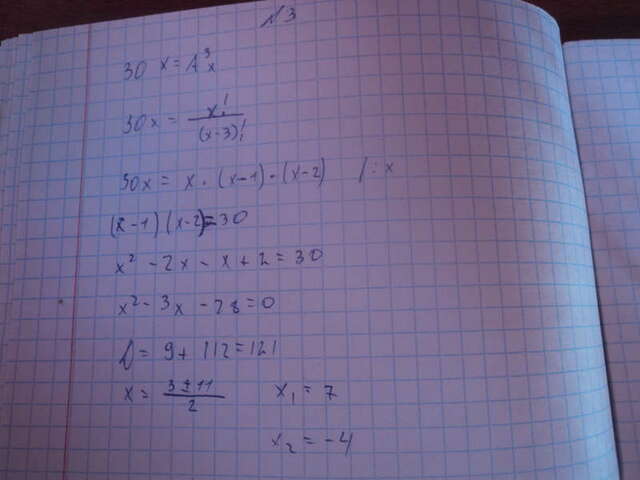 №3
30 x = A³ₓ
30x = x! / (x-3)!
30x = x · (x-1) · (x-2) / : x
(x-1)(x-2)=30
x² - 2x - x + 2 = 30
x² - 3x - 28 = 0
D = 9 + 112 = 121
x = (3 ± 11) / 2 x₁ = 7
x₂ = -4